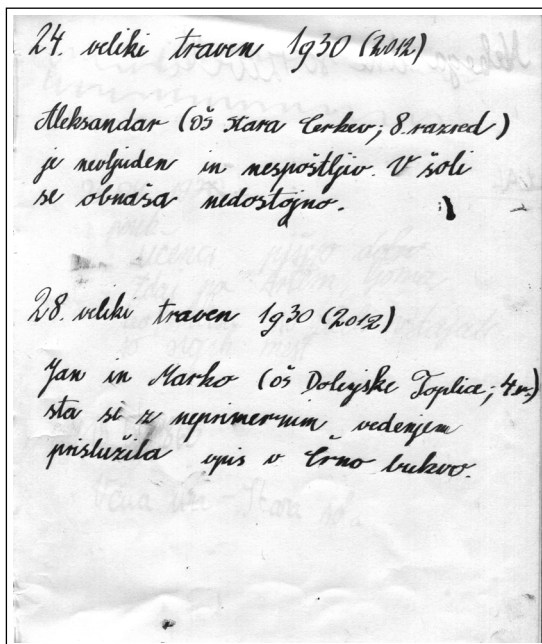 24. veliki traven 1930 (2012)
Aleksandar (OŠ Stara Cerkev; 8. razred)
je nevljuden in nespoštljiv. V šoli
se obnaša nedostojno.
28. veliki traven 1930 (2012)
Jan in Marko (OŠ Dolenjske Toplice; 4.r.)
sta si z neprimernim vedenjem
prislužila vpis v Črno bukvo.